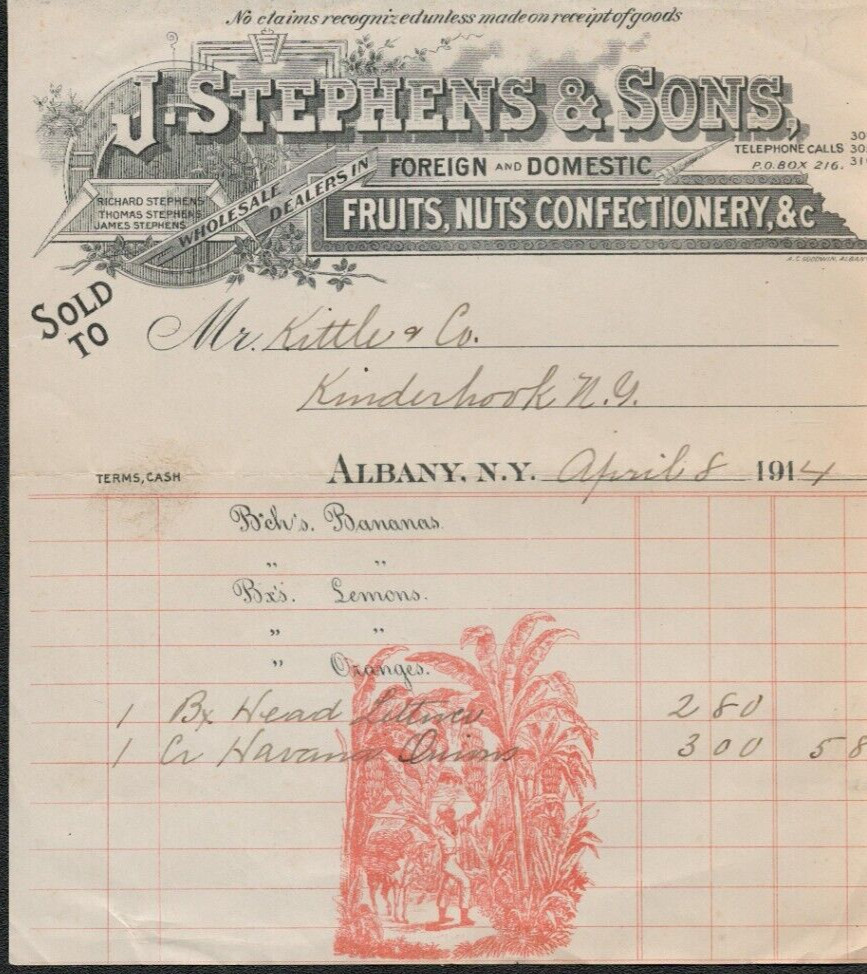 No claims recognized unless made on receipt of goods
J. STEPHENS & SONS,
TELEPHONE CALLS
P.O. BOX 216.
FOREIGN AND DOMESTIC
WHOLESALE DEALERS IN
FRUITS, NUTS CONFECTIONERY, &c
RICHARD STEPHENS
THOMAS STEPHENS
JAMES STEPHENS
A.C. GOODWIN, ALBANY
SOLD TO Mr. Kittle & Co.
Kinderhook N.Y.
TERMS, CASH ALBANY, N.Y. April 8 1914
B'ch's. Bananas.
" "
Bx's. Lemons.
" "
" Oranges.
1 Bx Head Lettuce 2 80
1 Cr Havana Onions 3 00 5 8